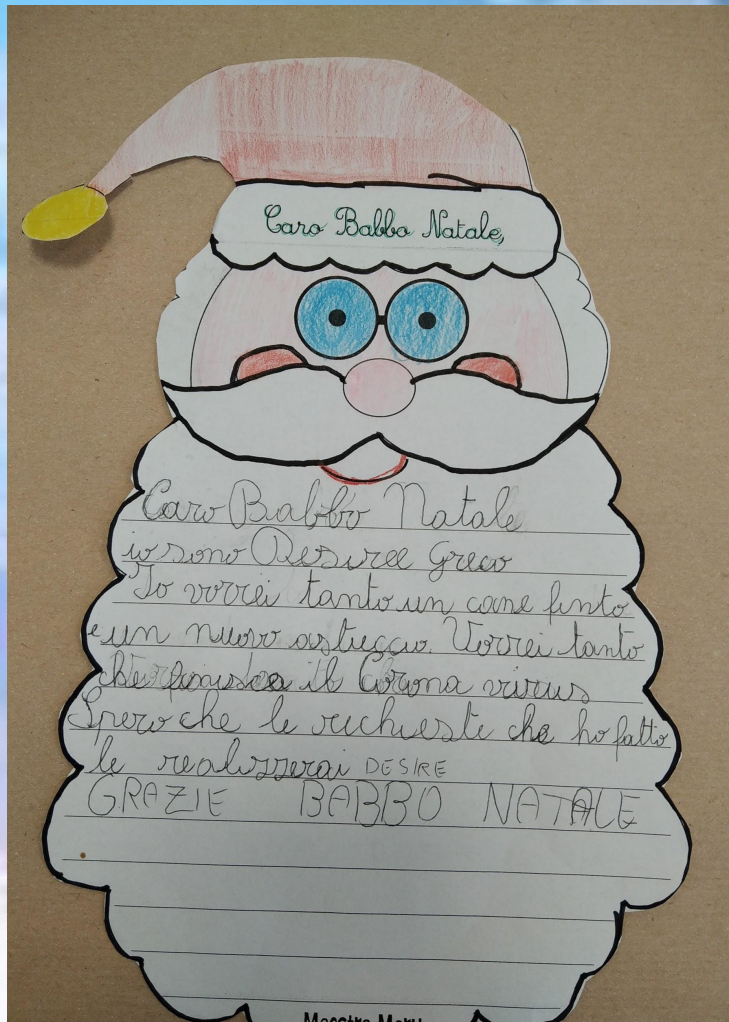 Caro Babbo Natale,
Caro Babbo Natale
io sono Desiree Greco
Io vorrei tanto un cane finto
e un nuovo astuccio. Vorrei tanto
che finisca il Corona virus
Spero che le richieste che ho fatto
le realizzerai DESIRE
GRAZIE BABBO NATALE
Maestra Mary